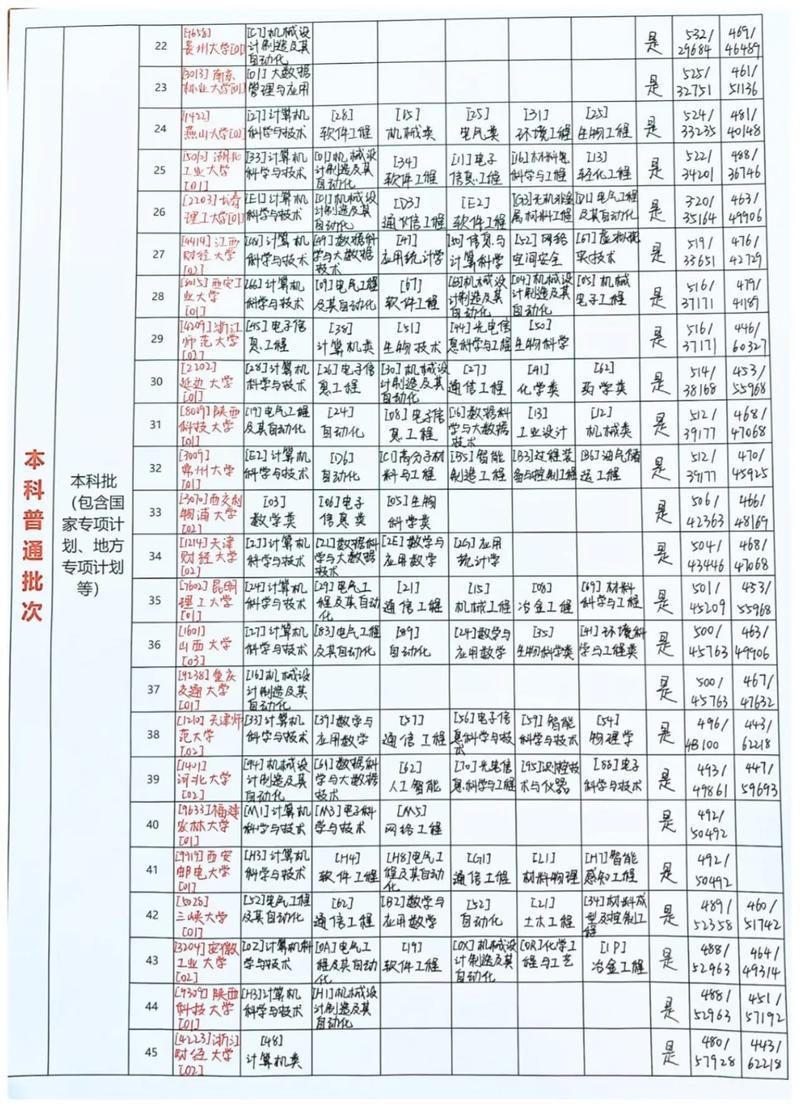 本科普通批次
本科批
（包含国
家专项计
划、地方
专项计划
等）
22 [9658] 贵州大学[01] [C7]机械设计制造及其自动化 是 532/29684 469/46489
23 [3013]南京林业大学[01] [01]大数据管理与应用 是 525/32751 461/51136
24 [1422] 燕山大学[02] [27]计算机科学与技术 [28]软件工程 [15]机械类 [25]电气类 [31]环境工程 [25]生物工程 是 524/33235 481/40148
25 [5013]湖北工业大学[01] [33]计算机科学与技术 [01]机械设计制造及其自动化 [34]软件工程 [11]电子信息工程 [16]材料科学与工程 [13]轻化工程 是 522/34201 488/36746
26 [2203]长春理工大学[01] [E1]计算机科学与技术 [01]机械设计制造及其自动化 [D3]通信工程 [E2]软件工程 [G3]无机非金属材料工程 [D1]电气工程及其自动化 是 520/35164 463/49906
27 [4414]江西财经大学[02] [48]计算机科学与技术 [49]数据科学与大数据技术 [47]应用统计学 [50]信息与计算科学 [52]网络空间安全 [67]虚拟现实技术 是 519/35651 476/42729
28 [8015]西安工业大学[01] [66]计算机科学与技术 [09]电气工程及其自动化 [67]软件工程 [B3]机械设计制造及其自动化 [04]机械设计制造及其自动化 [05]机械电子工程 是 516/37171 479/41189
29 [4209]浙江师范大学[02] [45]电子信息工程 [38]计算机类 [51]生物技术 [44]光电信息科学与工程 [50]生物科学 是 516/37171 446/60327
30 [2202]延边大学[01] [28]计算机科学与技术 [26]电子信息工程 [30]机械设计制造及其自动化 [27]通信工程 [41]化学类 [62]药学类 是 514/38168 453/55968
31 [8009]陕西科技大学[01] [19]电气工程及其自动化 [24]自动化 [08]电子信息工程 [16]数据科学与大数据技术 [13]工业设计 [12]机械类 是 512/39177 468/47068
32 [3009]常州大学[01] [E2]计算机科学与技术 [D6]自动化 [C1]高分子材料与工程 [B5]智能制造工程 [B3]过程装备与控制工程 [B6]油气储运工程 是 512/39177 470/45925
33 [3070]西交利物浦大学[02] [03]数学类 [06]电子信息类 [05]生物科学类 是 506/42363 466/48169
34 [1214]天津财经大学[02] [2J]计算机科学与技术 [21]数据科学与大数据技术 [2E]数学与应用数学 [2G]应用统计学 是 504/43446 468/47068
35 [7602]昆明理工大学[01] [24]计算机科学与技术 [29]电气工程及其自动化 [21]通信工程 [15]机械工程 [08]冶金工程 [69]材料科学与工程 是 501/45209 453/55968
36 [1601]山西大学[03] [27]计算机科学与技术 [83]电气工程及其自动化 [89]自动化 [24]数学与应用数学 [35]生物科学类 [41]环境科学与工程类 是 500/45763 463/49906
37 [9238]重庆交通大学[01] [16]机械设计制造及其自动化 是 500/45763 467/47632
38 [1210]天津师范大学[02] [33]计算机科学与技术 [39]数学与应用数学 [57]通信工程 [56]电子信息科学与技术 [59]智能科学与技术 [54]物理学 是 496/48100 443/62218
39 [1401]河北大学[02] [94]机械设计制造及其自动化 [61]数据科学与大数据技术 [62]人工智能 [70]光电信息科学与工程 [95]测控技术与仪器 [88]电子科学与技术 是 493/49861 447/59693
40 [9633]福建农林大学[01] [M1]计算机科学与技术 [M3]电子科学与技术 [M5]网络工程 是 492/50492
41 [9919]西安邮电大学[01] [H3]计算机科学与技术 [H4]软件工程 [H8]电气工程及其自动化 [G1]通信工程 [L1]材料物理 [H7]智能感知工程 是 492/50492
42 [5026]三峡大学[01] [52]电气工程及其自动化 [62]通信工程 [B2]数学与应用数学 [52]自动化 [21]土木工程 [34]材料成型及控制工程 是 489/52358 460/51742
43 [3204]安徽工业大学[02] [0Z]计算机科学与技术 [0A]电气工程及其自动化 [19]软件工程 [0X]机械设计制造及其自动化 [0R]化学工程与工艺 [1P]冶金工程 是 488/52963 464/49314
44 [9309]陕西科技大学[01] [H3]计算机科学与技术 [H1]机械设计制造及其自动化 是 488/52963 451/57192
45 [4223]浙江财经大学[02] [48]计算机类 是 480/57928 443/62218